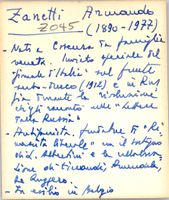 Zanetti Armando
Z045 (1890-1977)
- Nato a Cosenza da famiglia
veneta. Inviato speciale del
"Giornale d'Italia" sul fronte
turco-(1912) e in Rus-
sia durante la rivoluzione
che gli racconta nelle "Lettere
dalla Russia".
- Antifascista, fondatore di "Ri-
nascita liberale" con il sostegno
di L. Albertini e la collabora-
zione di Einaudi, Amendola,
De Ruggero.
- In esilio in Belgio